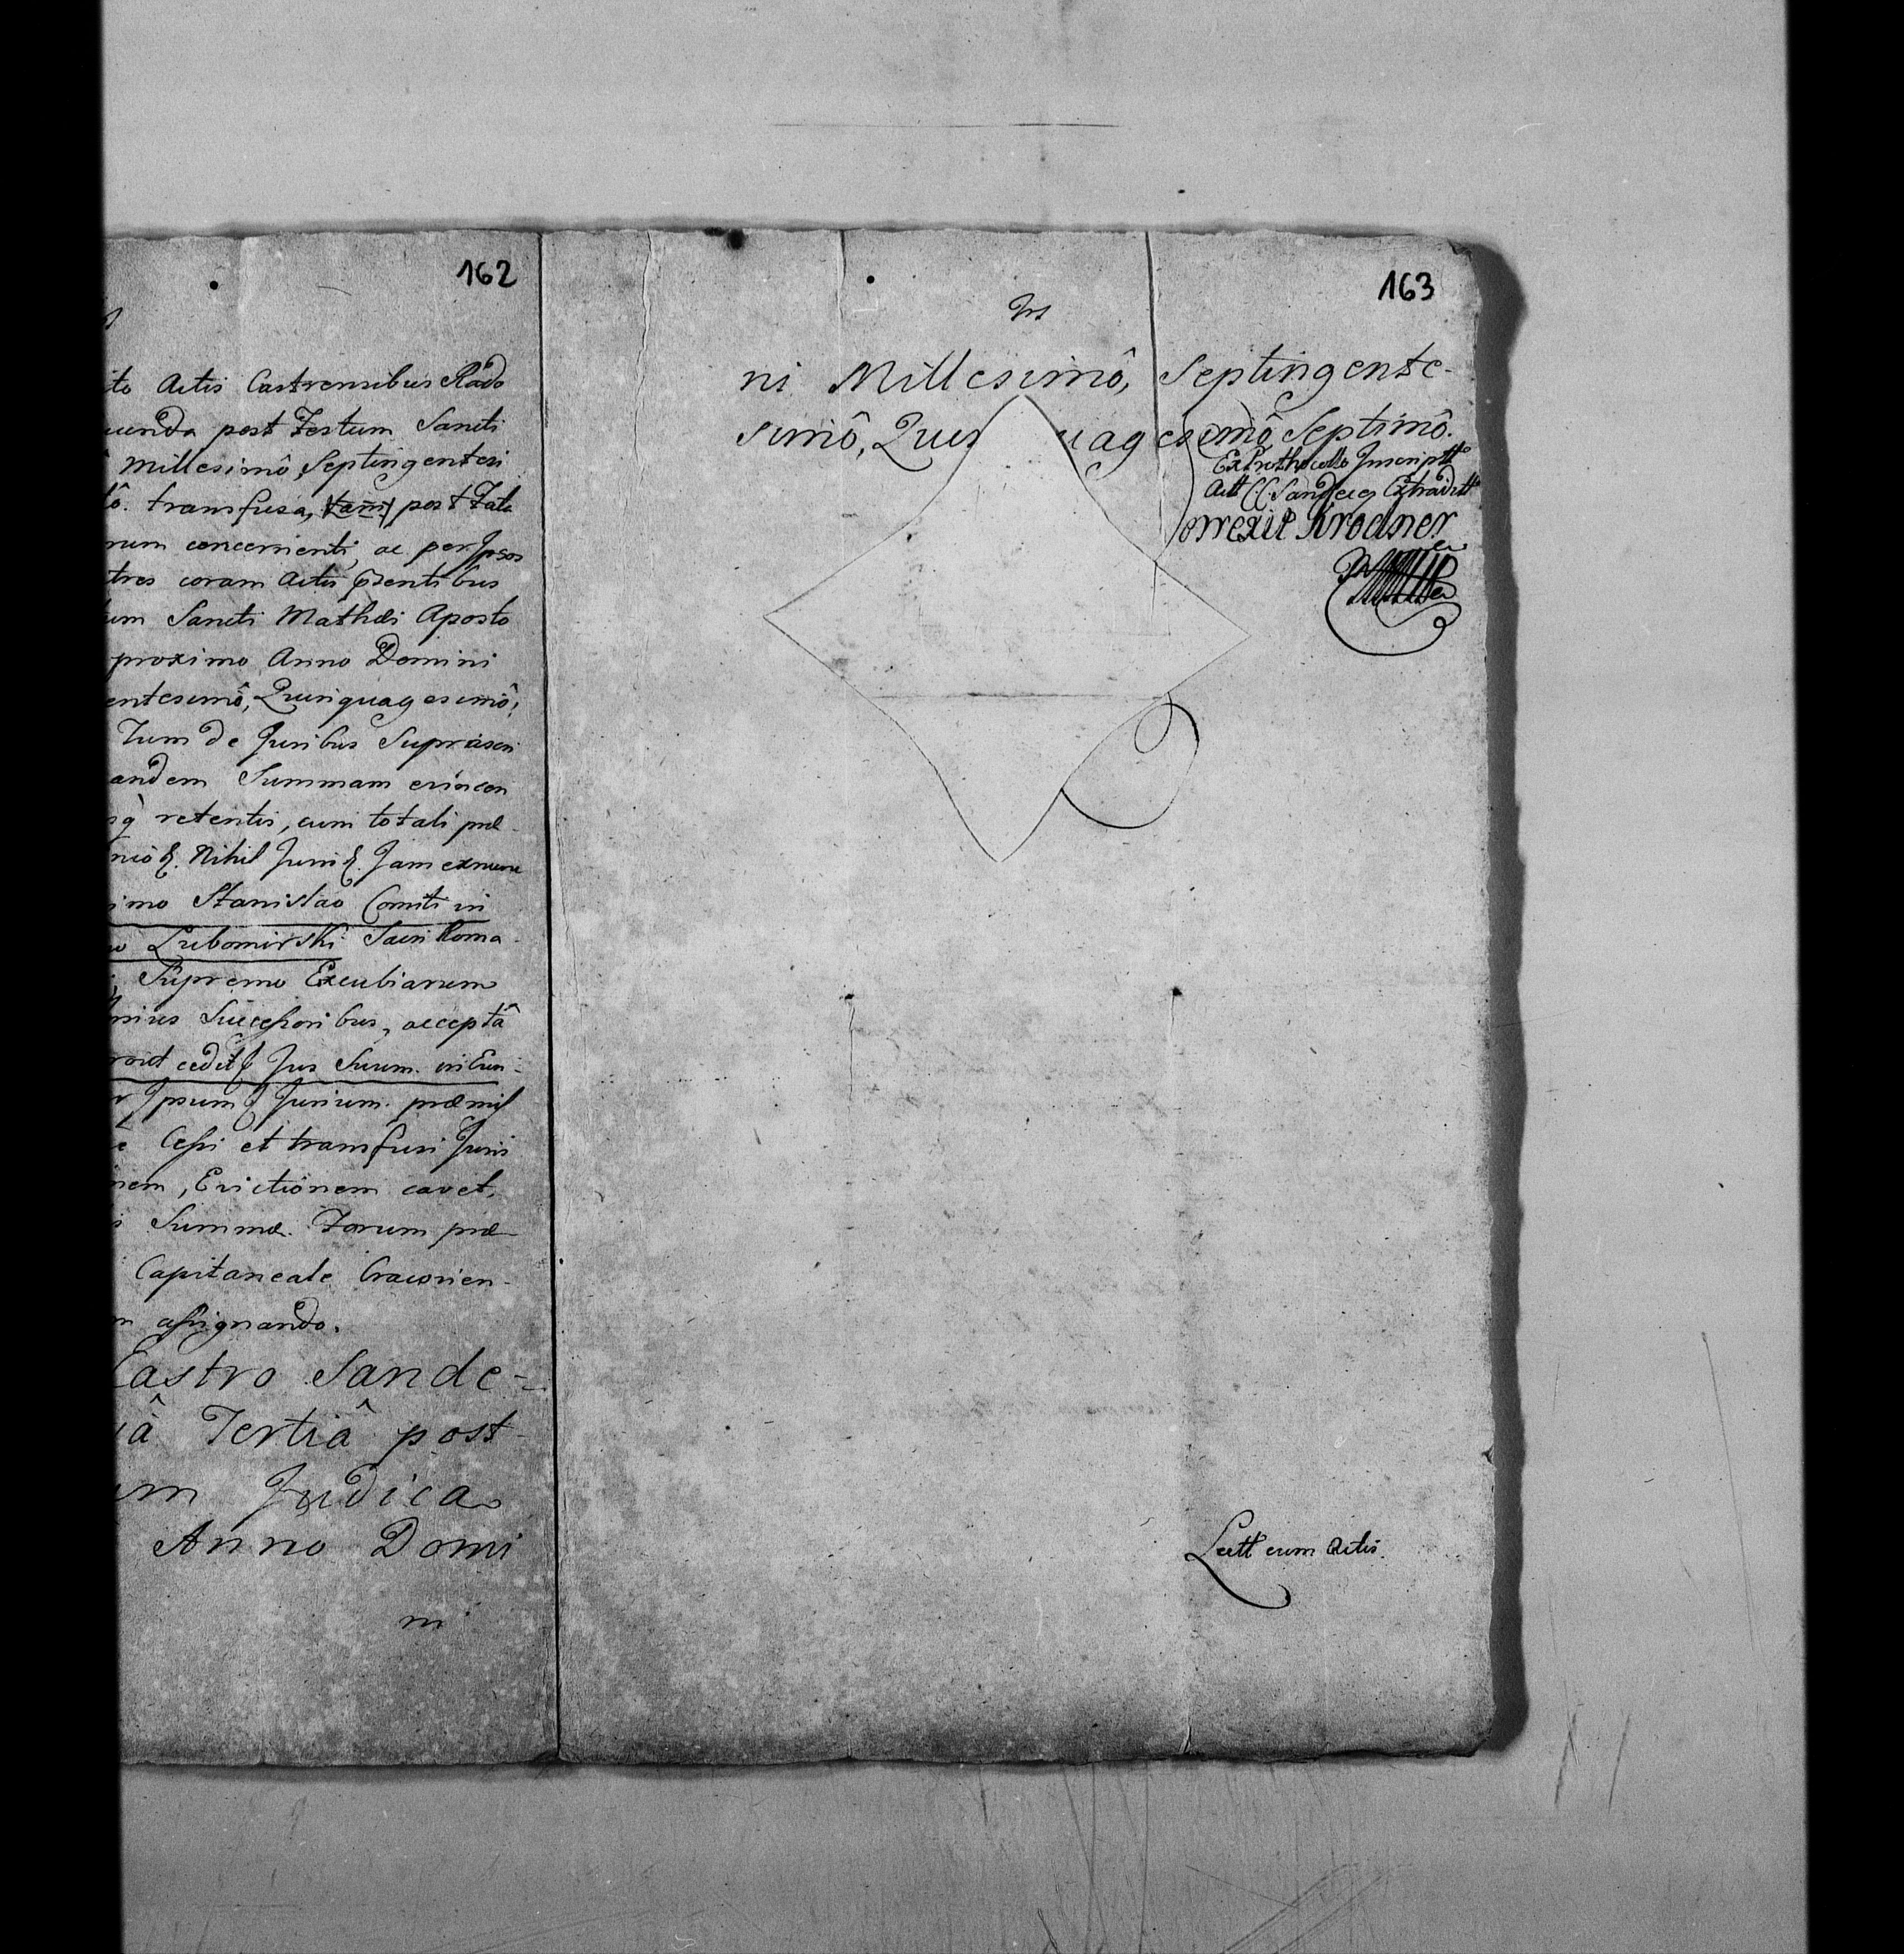 162
Actis Castrensibus Rado
post Festum Sancti
Millesimô, Septingentesi
transfusa, post Fata
concernenti, ac per Ipsos
coram Actis
Sancti Mathæi Aposto
proximo Anno Domini
entesimô, Quinquagesimô,
Tum de Juribus Suprascri
andem Summam
retentis, cum totali præ-
Nihil Juris Jam
imo Stanislao Comiti in
Lubomirski Sacri Roma-
Supremo Excubiarum
Successoribus, acceptâ
cedit Jus Suum.
Ipsum
Cessi et transfusi Juris
nem, Evictionem cavet,
Summæ. Forum præ-
Capitaneale Cracovien-
assignando.
Castro Sande-
iâ Tertiâ post
m Judica
Anno Domi
ni
163
ni Millesimô, Septingente-
simô, Quinquagesimô Septimô.
Ex Prothocollo Inscriptt
Actt CC. Sandecg Extraditt
Correxit Krodner
Lectt cum Actis.